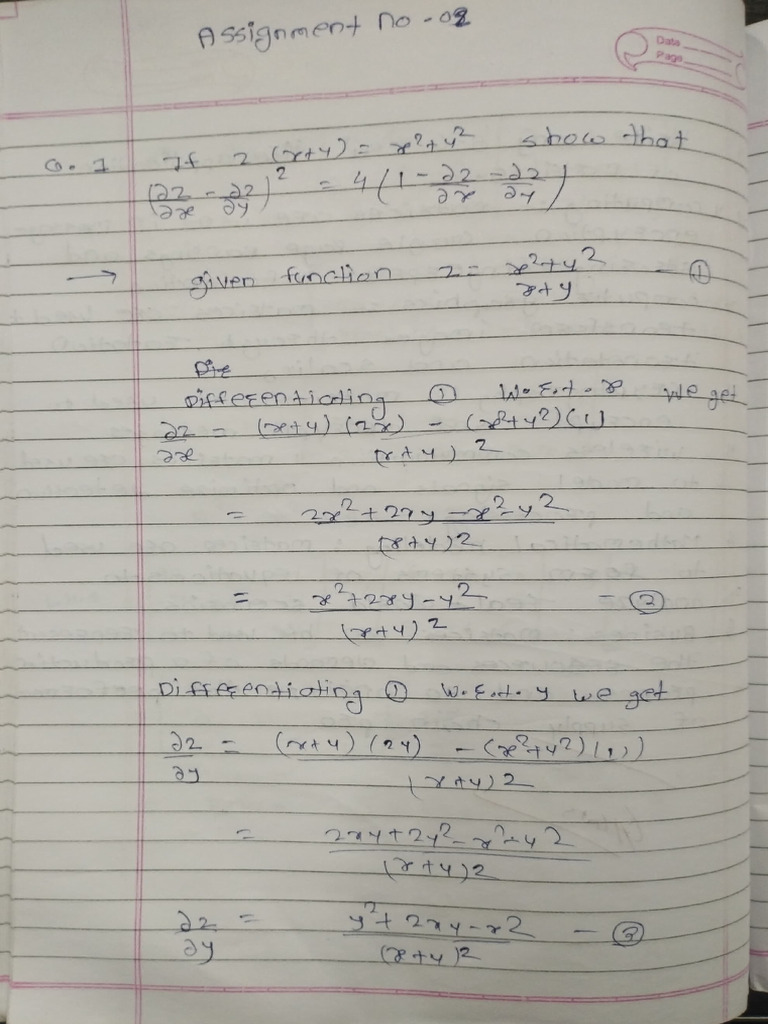 Assignment no - 02
Date
Page
Q. 1 If z (x+y) = x²+y² show that
(∂z/∂x - ∂z/∂y)² = 4(1 - ∂z/∂x - ∂z/∂y)
→ given function z = x²+y²/x+y - ①
Differentiating ① w.r.t. x we get
∂z/∂x = (x+y)(2x) - (x²+y²)(1)/(x+y)2
= 2x²+2xy-x²-y²/(x+y)2
= x²+2xy-y²/(x+y)2 - ②
Differentiating ① w.r.t. y we get
∂z/∂y = (x+y)(2y) - (x²+y²)(1)/(x+y)2
= 2xy+2y²-x²-y2/(x+y)2
∂z/∂y = y²+2xy-x2/(x+y)2 - ③